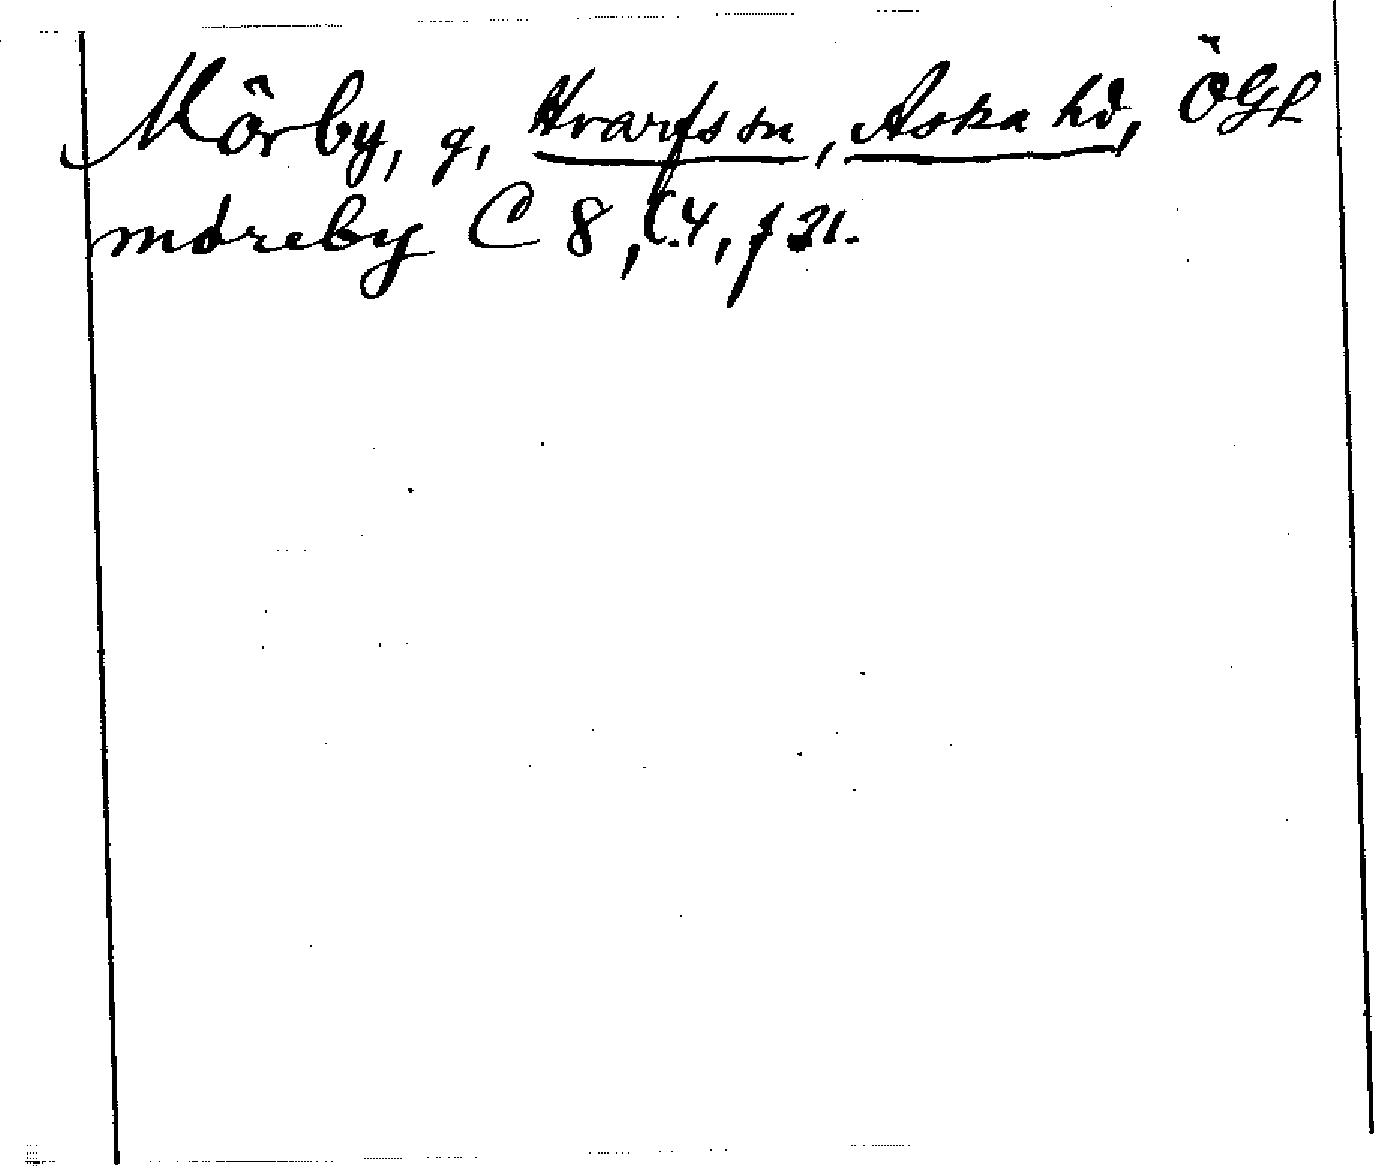 Mörby, g, Hvarfs sn, Aska hd, ÖGL
mdreby C 8, t.4, f 21.